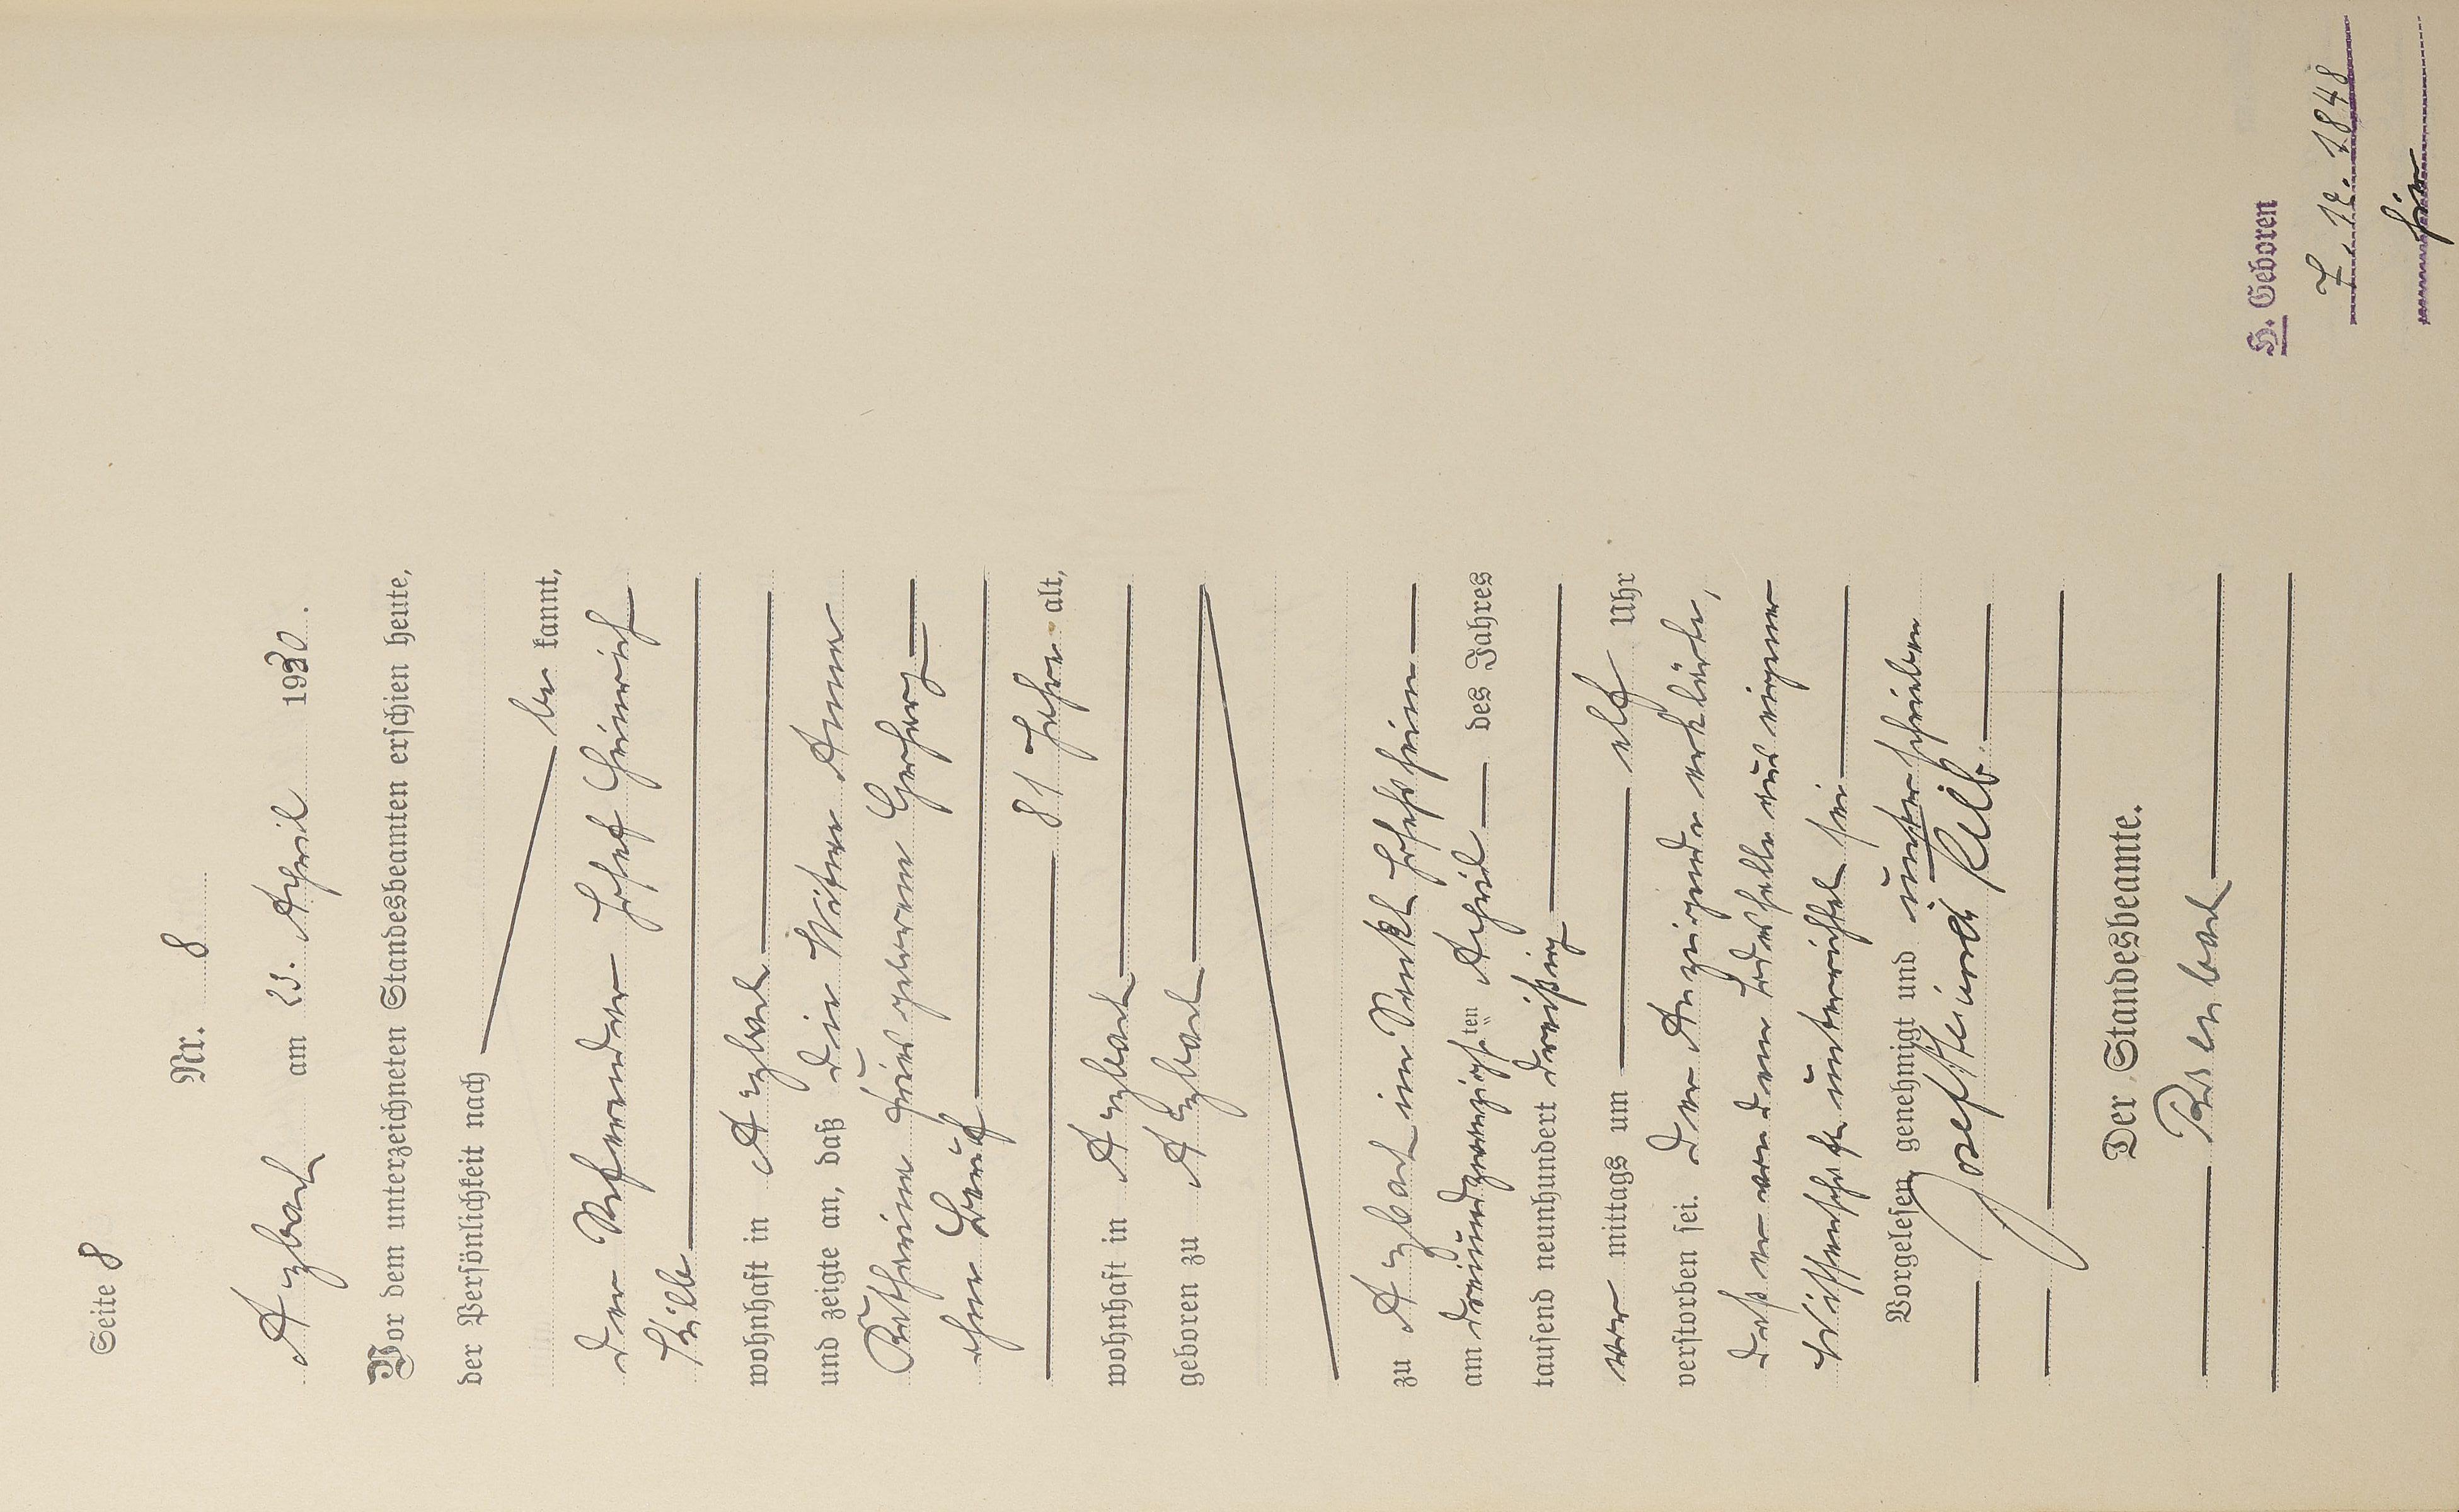 Seite 8
Nr. 8
Arzbach am 23. April 1930.
Vor dem unterzeichneten Standesbeamten erschien heute,
der Persönlichkeit nach
be kannt,
der Referendar Josef Heinrich
Külb
wohnhaft in Arzbach
und zeigte an, daß die Witwe Anna
Katharina geborene Herherz
ohne Beruf
81 Jahre alt,
wohnhaft in Arzbach
geboren zu Arzbach
zu Arzbach im Sankt Josefsheim
am dreiundzwanzigsten April des Jahres
tausend neunhundert dreißig
vor mittags um elf Uhr
verstorben sei. Der Anzeigende erklärte,
daß er von dem Todesfalle aus eigener
Wissenschaft unterrichtet sei
Vorgelesen, genehmigt und unterschrieben
Josef Heinrich Külb.
Der Standesbeamte.
H. Geboren
7. 12. 1848
hier